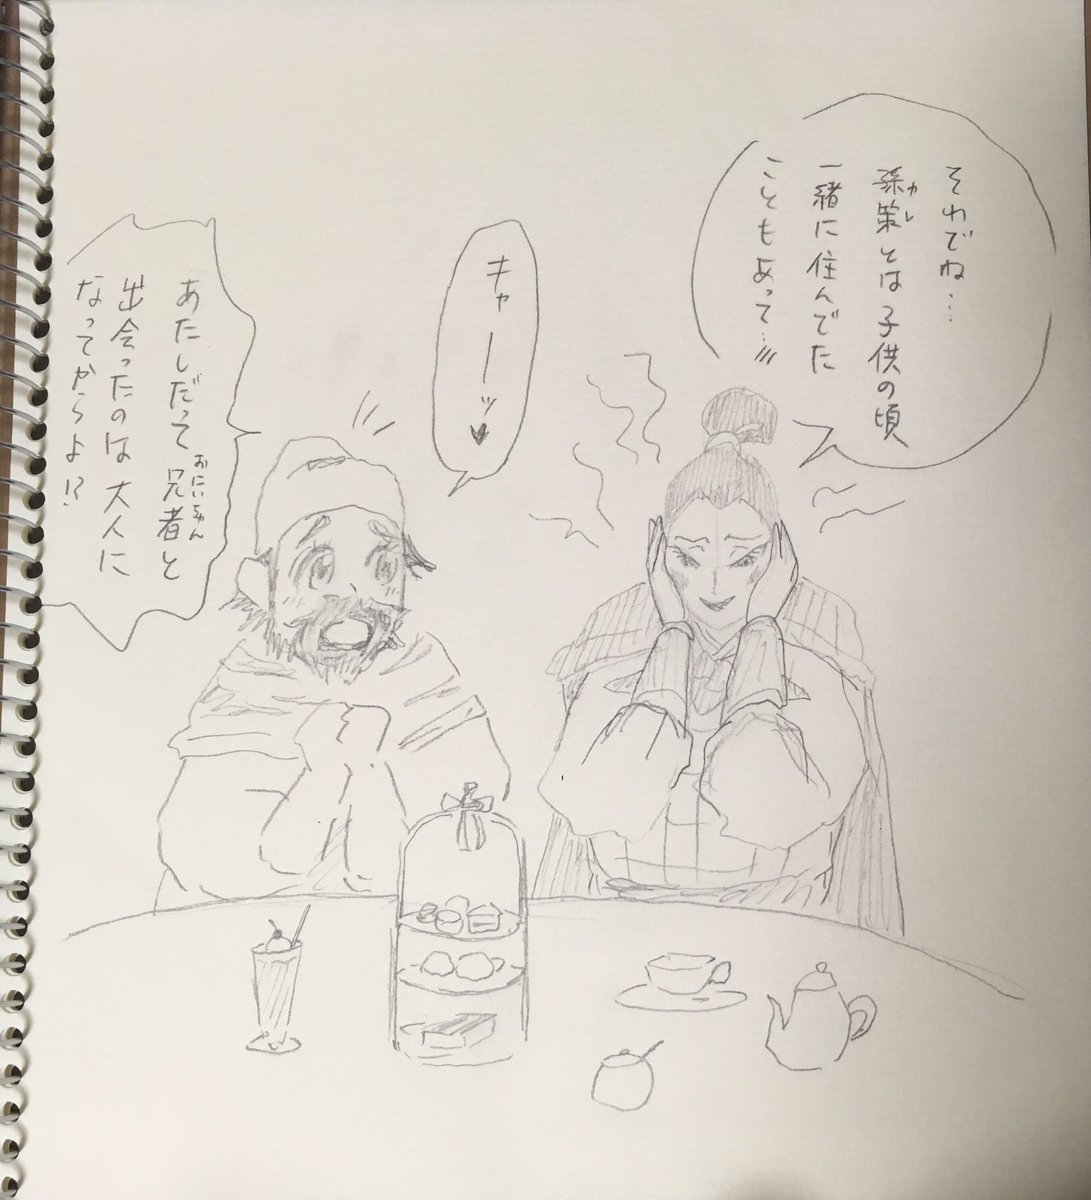 それでね…
孫策とは子供の頃
カレ
一緒に住んでた
こともあって…
キャーーッ♥
あたしだって兄者と
おにいちゃん
出会ったのは大人に
なってからよ!?